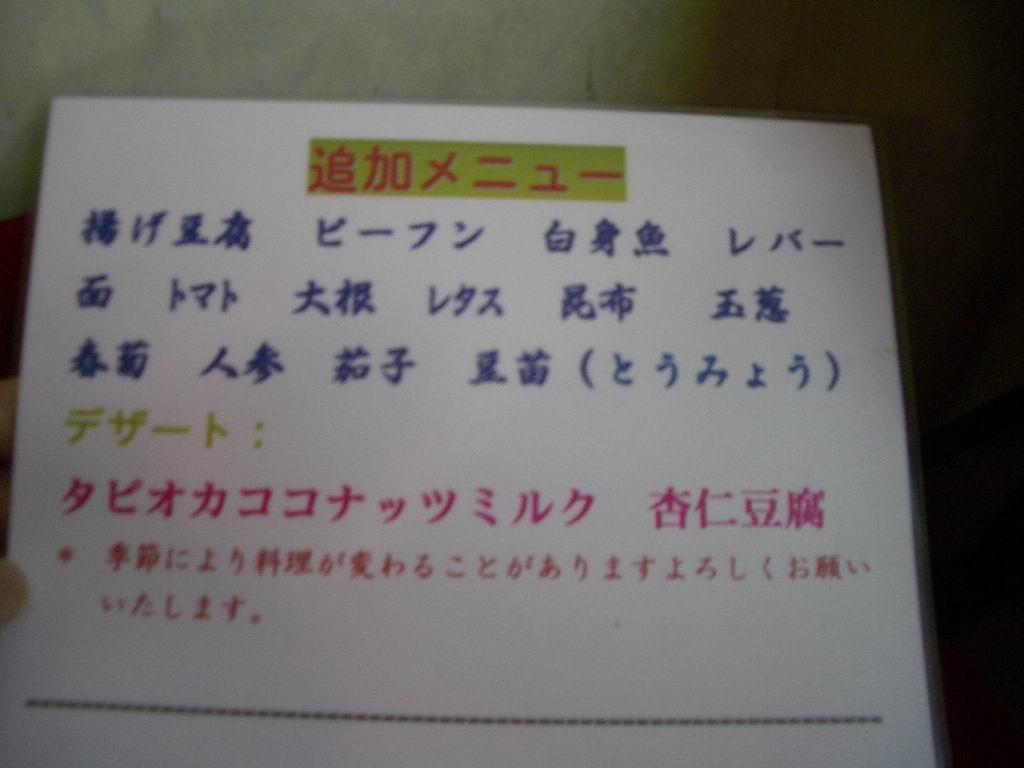 追加メニュー
揚げ豆腐 ビーフン 白身魚 レバー
面 トマト 大根 レタス 昆布 玉葱
春菊 人参 茄子 豆苗（とうみょう）
デザート：
タピオカココナッツミルク 杏仁豆腐
* 季節により料理が変わることがありますよろしくお願い
いたします。